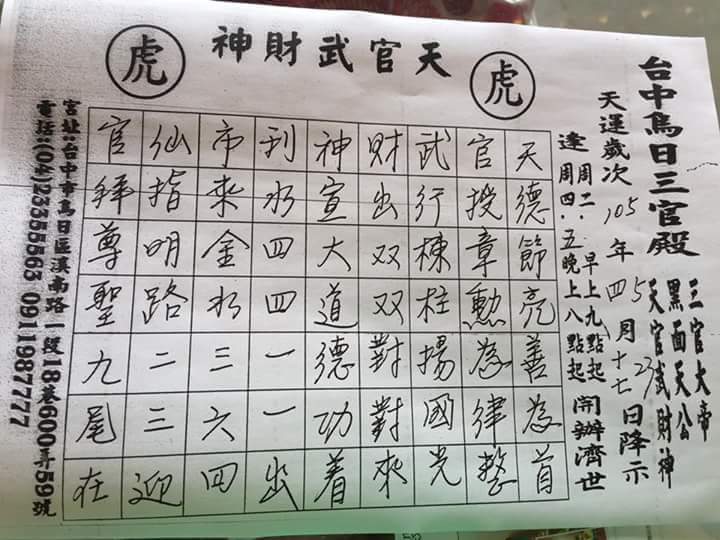 天官武財神
虎
虎
台中烏日三官殿
三官大帝
黑面天公
天官武財神
天運歲次105年四月十七日降示
5 23
逢周二．早上九點起
周四．五晚上八點起
開辦濟世
天德節亮善為首
官授章勲為律整
武行棟柱揚國光
財出双双對對來
神宣大道德功着
刊水四四一一出
市來金水三六四
仙指明路二三迎
官拜尊聖九尾在
宮址：台中市烏日區溪南路一段18巷600弄59號
電話：(04)23355563 0911987777